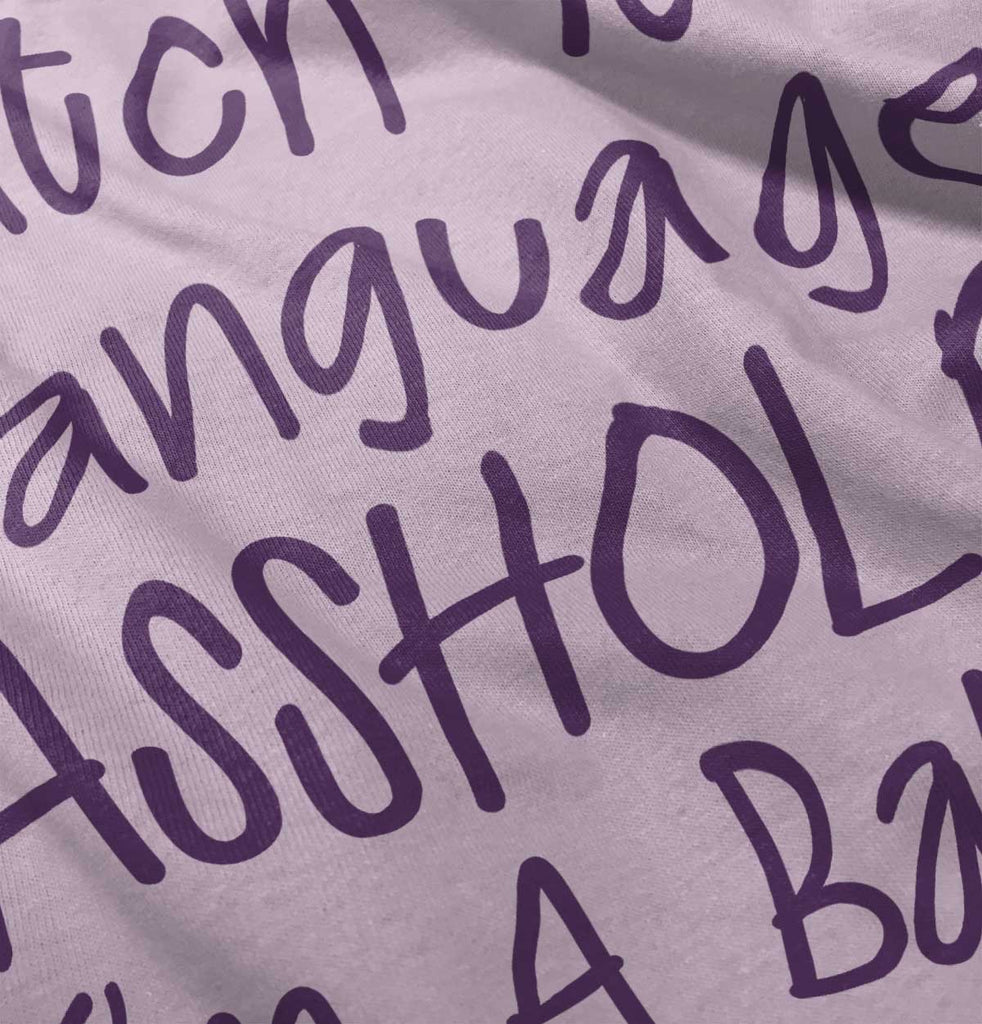 tch
anguage
ASSHOLE
A Ba